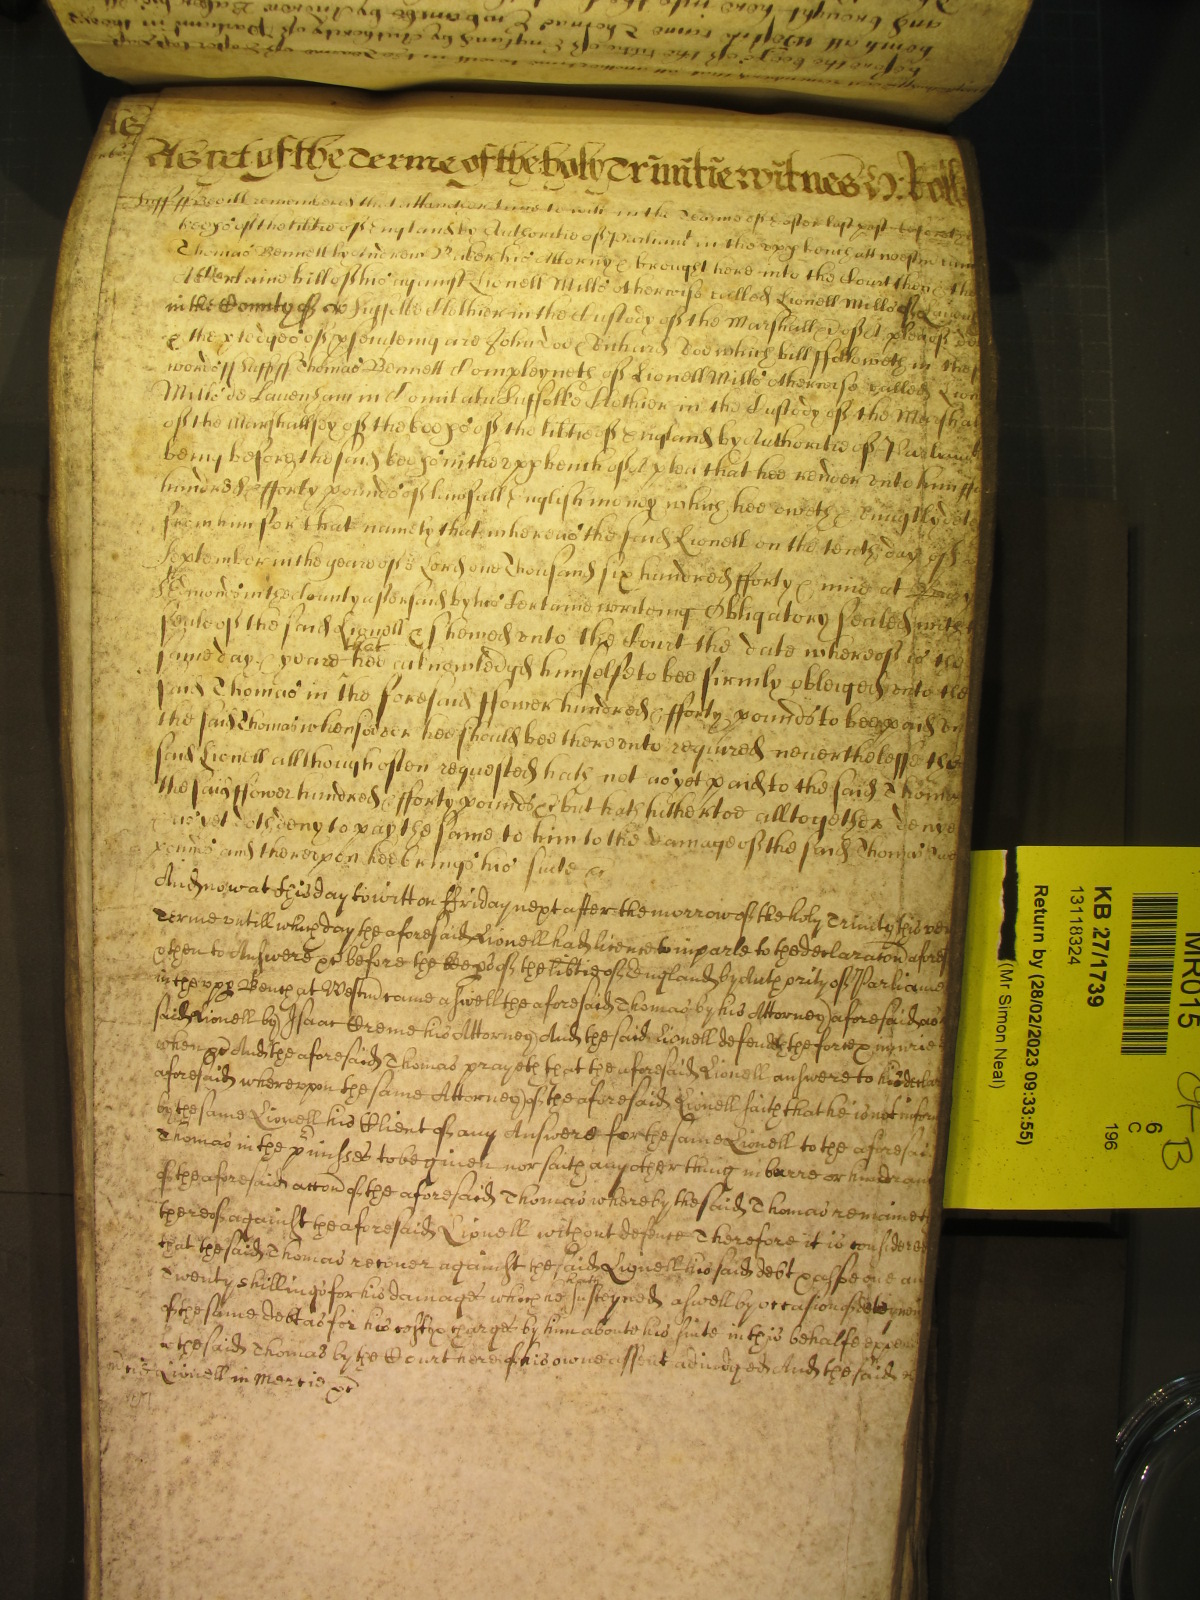 As yet of the Terme of the holy Trinitie witnes H: Rolle
Suff ss Be itt remembred that att another time to wit in the Tearme of Easter last past before the
keepers of the libtie of England by Authoritie of Parliamt in the upp bench att Westm came
Thomas Bennett by Andrew Baker his Attorny & brought here into the Court then & there
A Certaine bill of his against Lionell Mills otherwise called Lionell Mills of
in the County of Suffolke Clothier in the Custody of the Marshall &c of A plea of debt
& the pledges of psenteing are John Doe & Richard Roe which bill ffolloweth in these
words ss Suff ss Thomas Bennett Compleyneth of Lionell Mills otherwise called Lionell
Mills de Lavenham in Comitatu Suffolke Clothier in the Custody of the Marshall
of the Marshallsey of the keepers of the libtie of England by Authoritie of Parliamt
being before the said keepers in the upp bench of A plea that hee render unto him ffower
hundred & fforty pounds of lawfull English money which hee oweth & uniustly deteineth
from him for that namely that whereas the said Lionell on the tenth day of
September in the yeare of or Lord one Thousand six hundred fforty & nine at Bury St
Edmonds in the County aforsaid by his Certaine writeing Obligatory sealed with the
seale of the said Lionell & shewed unto the Court the date whereof is the
same day & yeare that hee acknowledged himselfe to bee firmly obleiged unto the
said Thomas in the foresaid ffower hundred & fforty pounds to bee paid unto
the said Thomas whensoever hee should bee thereunto required neverthelesse the
said Lionell allthough often requested hath not as yet paid to the said Thomas
the said ffower hundred & fforty pounds &c but hath hithertoe alltogether denyed
& as yet doth deny to pay the same to him to the damage of the said Thomas
pounds and thereupon hee brings his suite &c
And now at this day to witt on ffriday next after the morrow of the holy Trinity this very
Terme untill which day the aforesaid Lionell had licence to imparle to the declaracon aforesaid
& then to Answere &c before the Keeps of the libtie of England by Authority of Parliament
in the upp Bench at Westm came aswell the aforesaid Thomas by his Attorney aforesaid as the
said Lionell by Isaac Creme his Attorney And the said Lionell defends the force & iniurie
when &c And the aforesaid Thomas prayeth that the aforesaid Lionell answere to his declaracon
aforesaid whereupon the same Attorney of the aforesaid Lionell saith that he is not informed
by the same Lionell his Client of any Answere for the same Lionell to the aforesaid
Thomas in the pmisses to be given nor saith any other thing in barre or
of the aforesaid accon of the aforesaid Thomas whereby the said Thomas remaineth
thereof against the aforesaid Lionell without defence Therefore it is considered
that the said Thomas recover against the said Lionell his said debt & alsoe one and
Twenty shillings for his damages which he hath susteyned aswell by occasion of deteyneing
of the same debt as for his costs & charges by him about his suite in this behalfe expended
to the said Thomas by the Court here of his owne assent adiudged And the said
Lionell in Mercie &c
MR015
KB 27/1739
13118324
6
C
196
Return by (28/02/2023 09:33:55)
(Mr Simon Neal)